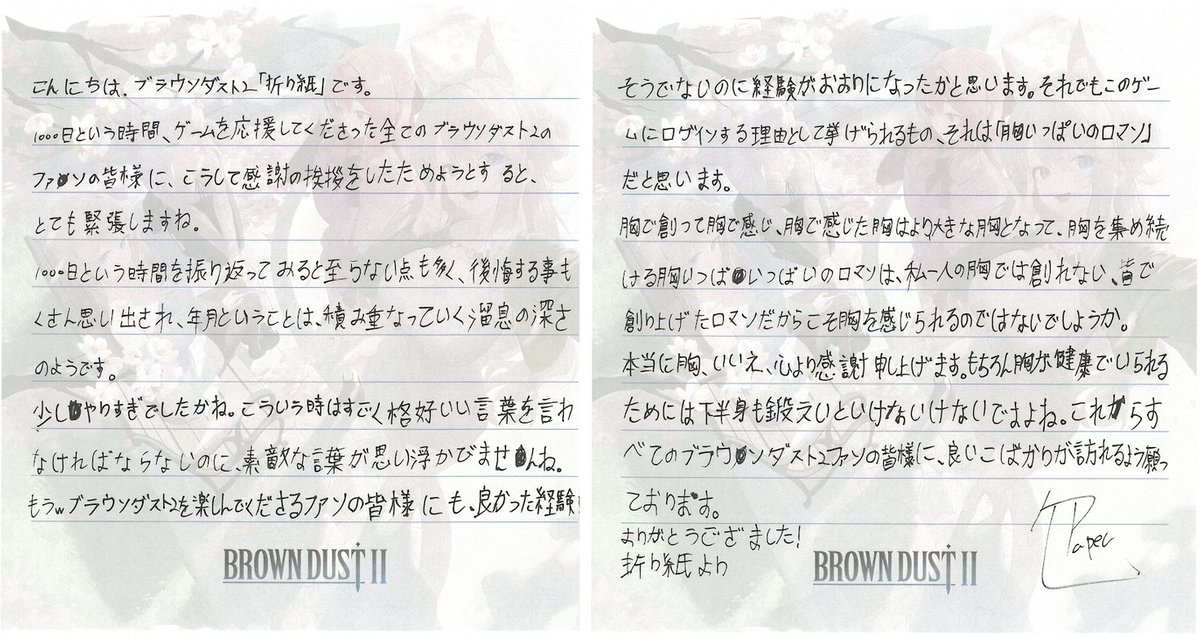 こんにちは、ブラウンダスト2「折り紙」です。
1000日という時間、ゲームを応援してくださった全てのブラウンダスト2の
ファンの皆様に、こうして感謝の挨拶をしたためようとすると、
とても緊張しますね。
1000日という時間を振り返ってみると至らない点も多く、後悔する事も
くさん思い出され、年月ということは、積み重なっていく溜息の深さ
のようです。
少しやりすぎでしたかね。こういう時はすごく格好いい言葉を言わ
なければならないのに、素敵な言葉が思い浮かびませんね。
もうw ブラウンダスト2を楽しんでくださるファンの皆様にも、良かった経験
BROWN DUST II
そうでないのに経験がおありになったかと思います。それでもこのゲー
ムにログインする理由として挙げられるもの、それは「胸いっぱいのロマン」
だと思います。
胸で創って胸で感じ、胸で感じた胸はより大きな胸となって、胸を集め続
ける胸いっぱいっぱいのロマンは、私一人の胸では創れない、皆で
創り上げたロマンだからこそ胸を感じられるのではないでしょうか。
本当に胸、いいえ、心より感謝申し上げます。もちろん胸が健康でいられる
ためには下半身も鍛えいといけないけないですよね。これからす
べてのブラウンダスト2ファンの皆様に、良いこばかりが訪れるよう願っ
ております。
ありがとうございました!
折り紙より
Paper
BROWN DUST II